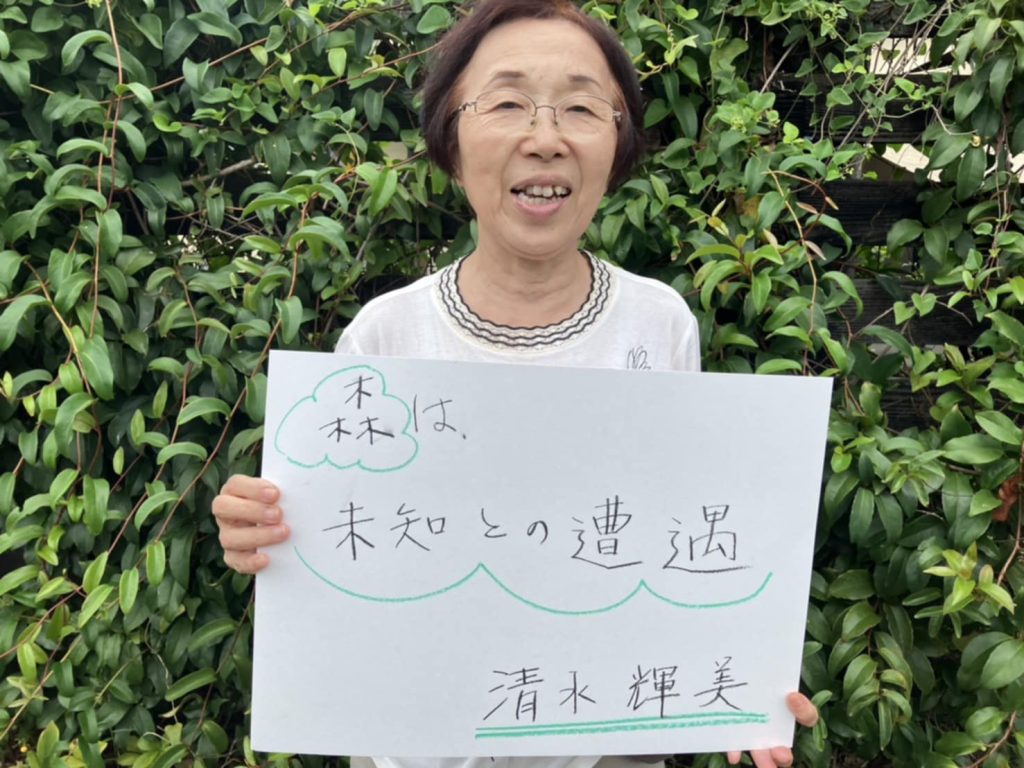 森は、
未知との遭遇
清水輝美